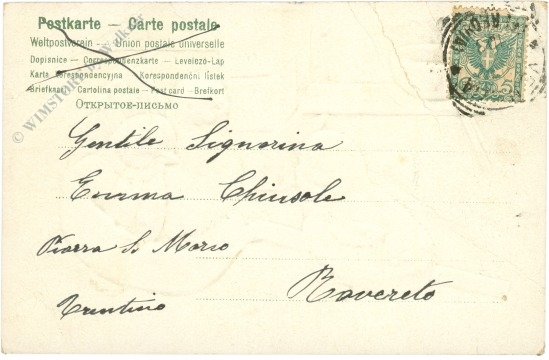 Postkarte — Carte postale
Weltpostverein — Union postale universelle
Dopisnice — Correspondenzkarte — Levelező-Lap
Karta korespondencyjna Korespondenční lístek
Briefkaart — Cartolina postale — Post card — Brefkort
Открытое-письмо
© WIMSTORY by Walker
5
Gentile Signorina
Emma Chiusole
Piazza S. Marco
Rovereto
Trentino